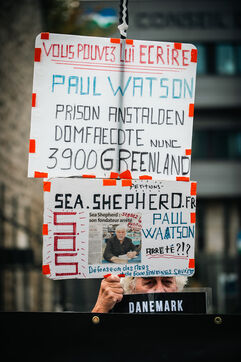 CONSEIL
VOUS POUVEZ LUI ECRIRE
PAUL WATSON
PRISON ANSTALDEN
DOMFAECDTE NUNC
3900 GREENLAND
PETITIONS
SEA.SHEPHERD.FR
SOS
Sea Shepherd :
son fondateur arrêté
PAUL
WATSON
ARRETÉ ???
Défenseur des Mers
DANEMARK